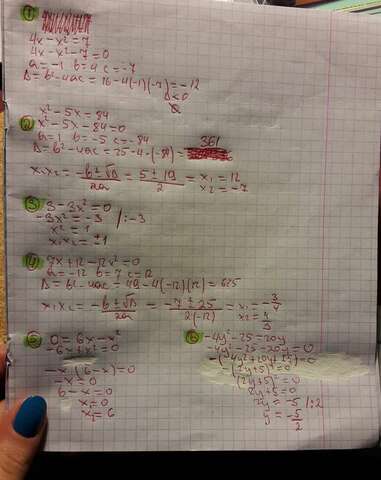 1
4x-x²=7
4x-x²-7=0
a=-1 b=4 c=-7
D=b²-4ac=16-4(-1)(-7)=-12
D<0
x²-5x=84
2 x²-5x-84=0
a=1 b=-5 c=-84
D=b²-4ac=25-4·(-84)= 361
x₁x₂ = -b±√D/2a = 5±19/2 = x₁=12
x₂=-7
3 3-3x²=0
-3x²=-3 /:-3
x²=1
x₁x₂=±1
4 7x+12-12x²=0
a=-12 b=7 c=12
D=b²-4ac=49-4(-12)(12)=625
x₁x₂= -b±√D/2a = -7±25/2(-12) = x₁=-3/4
x₂=4/3
5 0=6x-x²
-6x+x²=0
-x(6-x)=0
-x=0
6-x=0
x=0
x=6
6 -4y²-25=20y
-4y²-25-20y=0
(2y+5)²=0
(2y+5)²=0
2y+5=0
2y=-5 /:2
y=-5/2